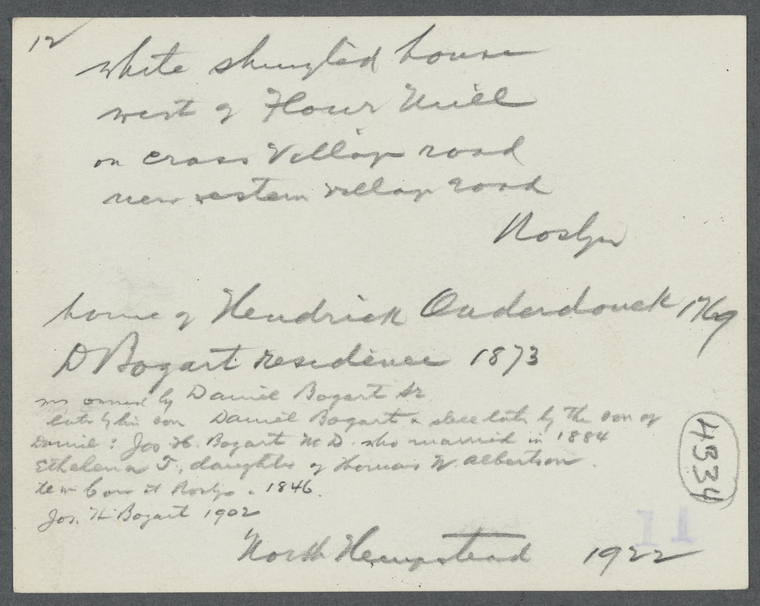 12
white shingled house
west of Flour Mill
on cross Village road
near western village road
Roslyn
home of Hendrick Onderdonck 1769
D Bogart residence 1873
owned by Daniel Bogart Sr
later by his son Daniel Bogart & still later by the son of
Daniel: Jos. H. Bogart M D. who married in 1884
Ethelena T., daughter of Thomas W. Albertson.
born at Roslyn. 1846.
Jos. H Bogart 1902
North Hempstead 1922
4334
11